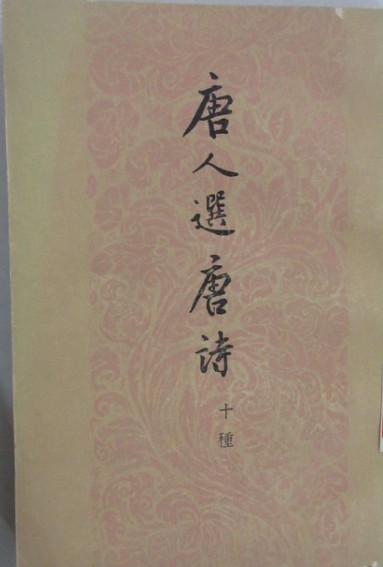 唐人選唐詩
十種